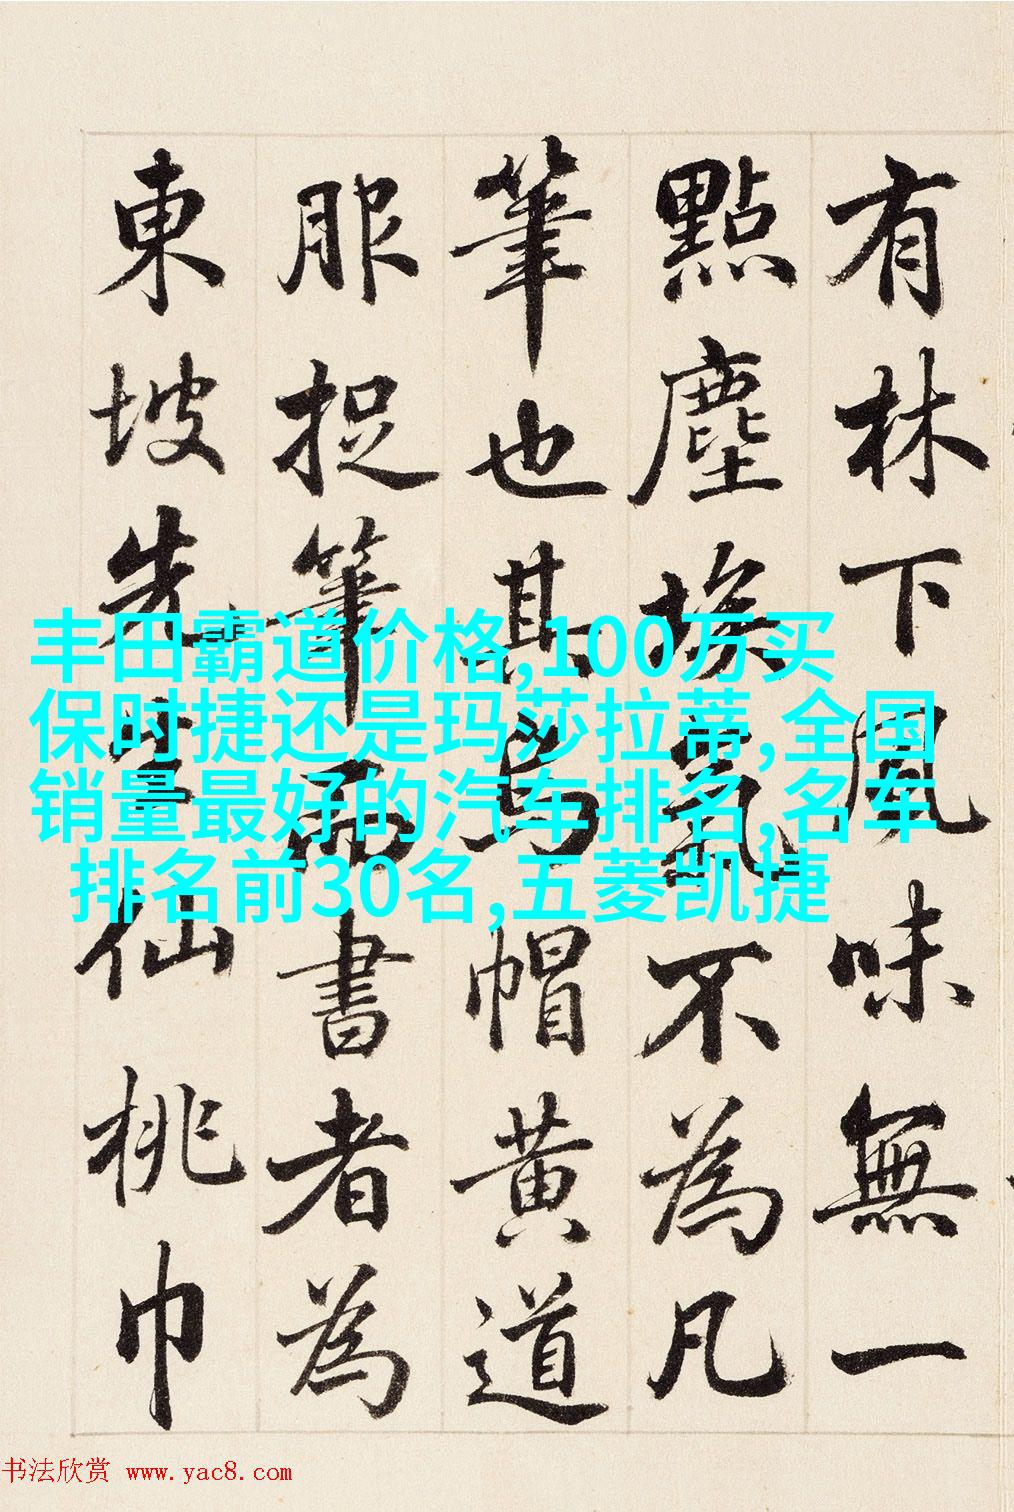 有林下風味無一
點塵埃氣不為凡
筆也其烏帽黃道
服捉筆而書者為
東坡先生仙桃巾
丰田霸道价格,100万买
保时捷还是玛莎拉蒂,全国
销量最好的汽车排名,名车
排名前30名,五菱凯捷
书法欣赏 www.yac8.com